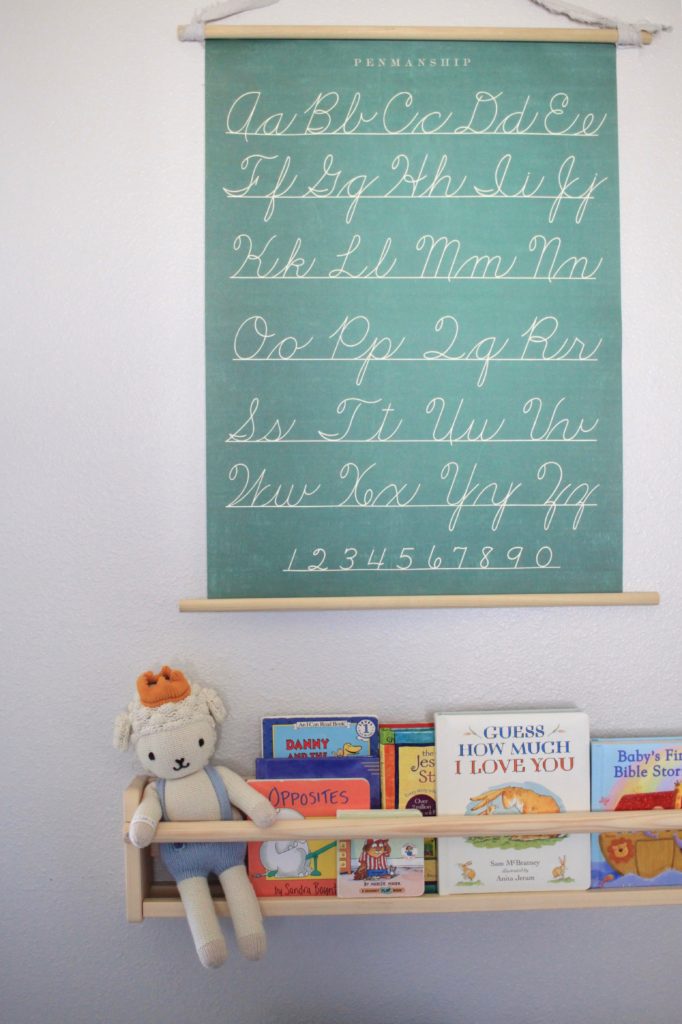 PENMANSHIP
Aa Bb Cc Dd Ee
Ff Gg Hh Ii Jj
Kk Ll Mm Nn
Oo Pp Qq Rr
Ss Tt Uu Vv
Ww Xx Yy Zz
1 2 3 4 5 6 7 8 9 0
An I Can Read Book
1
DANNY
AND THE
OPPOSITES
by Sandra Boynt
BY MERCER MAYER
the
Jes
St
Over
2 million
GUESS
HOW MUCH
I LOVE YOU
Sam McBratney
illustrated by
Anita Jeram
Baby's Fir
Bible Stor